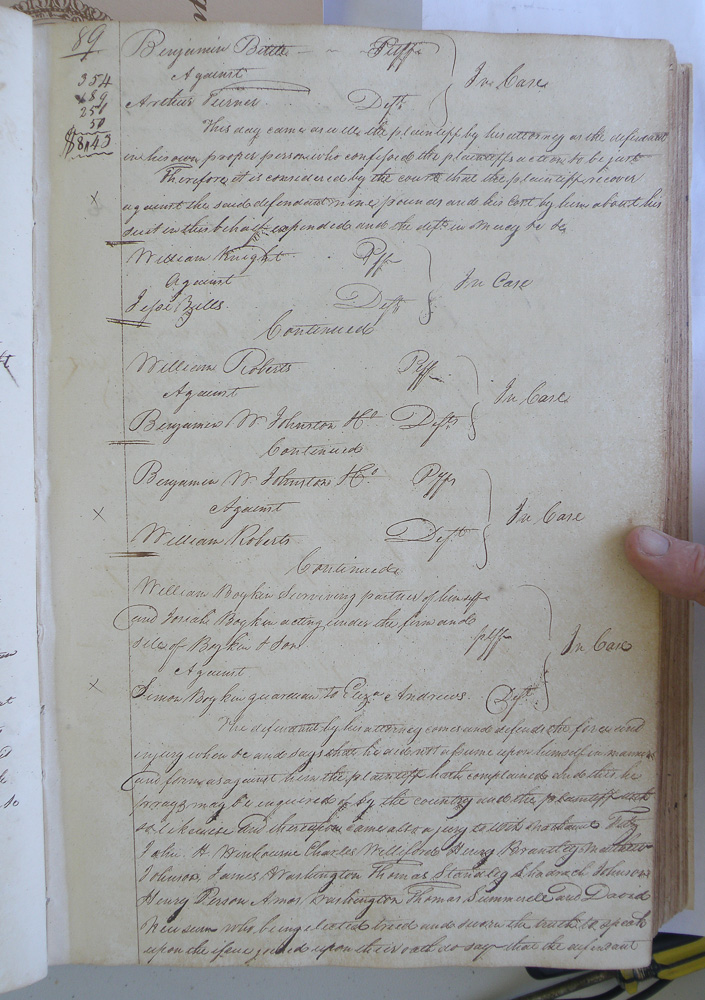 89
354
189
251
50
$8.43
Benjamin Bittle Plff
Against In Case
Arthur Turner Deft
This day came as well the plaintiff by his attorney as the defendant
in his own proper person who confessed the plaintiffs action to be just
Therefore it is considered by the court that the plaintiff recover
against the said defendant nine pounds and his Cost by him about his
suit in this behalf expended and the deft in Mercy &c
William Knight Plff
Against In Case
Jesse Bells Deft
Continued
William Roberts Plff
Against In Case
Benjamin W Johnston &Co Defts
Continued
Benjamin W Johnston &Co Plffs
Against In Case
William Roberts Deft
Continued
William Boykin Surviving partner of himself
and Josiah Boykin acting under the firm and
stile of Boykin & Son plff In Case
Against
Simon Boykin guardian to Eliza Andrews Deft
The defendant by his attorney comes and defends the force and
injury when &c and says that he did not assume upon himself in manner
and form as against him the plaintiff hath complained and this he
prays may be enquired of by the country and the plaintiff doth
so likewise And thereupon came also a jury to wit
John H Winbourne Charles Williford Henry Brantley
Johnson James Washington Thomas Standley Shadrach Johnson
Henry Person Amos Washington Thomas Summerell and David
Newsum who being elected tried and sworn the truth to speak
upon the issue joined upon their oath do say that the defendant